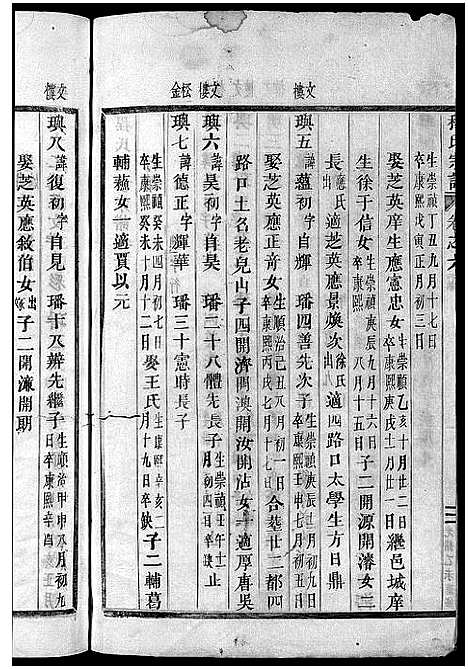 程氏宗譜 卷之六
生崇禎丁丑九月十七日
卒康熙戊寅正月初三日
娶芝英庠生應憲忠女 生崇禎乙亥十月廿二 卒康熙庚戌十二月 繼邑城庠
生徐于信女 生崇禎庚辰九月十六日 卒康熙 八月十五日 子二開源開濬女二
長 應氏 適芝英應景煥次 徐氏 適四路口太學生方日鼎
文樓
璵五 諱 字 璠四善先次子 生崇禎庚辰二月初
娶芝英應正齋女 生順治己丑八月初一日 卒康熙丙戌七月十七日 合葬廿二都四
路口土名老兒山子四開濟開澳開汝開沾女一適厚唐吳
文樓
璵六 諱昊初字 璠二十八體先長子 生崇禎壬午十二 卒康熙 止
松金
璵七 諱德正字輝華 璠三十憲時長子
生崇禎癸未四月初七日 卒康熙癸未十月十二日 娶王氏 生康熙辛亥二 月十九日卒缺 子二輔葛
輔蓺女一適賈以元
文樓
璵八 諱復初字自見 璠十及辨先繼子 生順治甲申八月初九 日卒康熙辛 正月
娶芝英應敘伯女 子二開濂開期